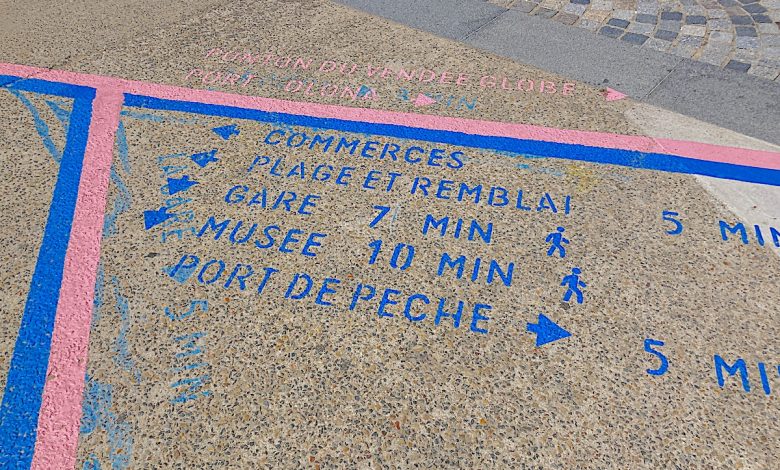 PONTON DU VENDEE GLOBE
PORT OLONA
MIN
COMMERCES
PLAGE ET REMBLAI 5 MIN
GARE 7 MIN
MUSEE 10 MIN
PORT DE PECHE 5 MIN
5 MIN